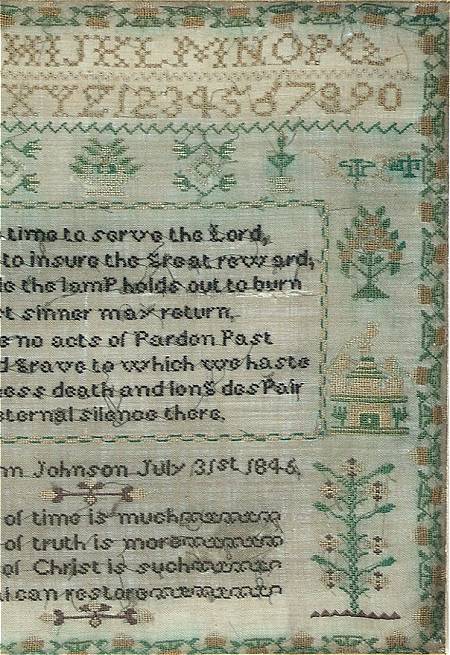 HIJKLMNOPQ
XYZ1234567890
time to serve the Lord,
to insure the Great reward,
the lamP holds out to burn
sinner may return.
no acts of Pardon Past
Grave to which we haste
death and long desPair
eternal silence there.
Johnson July 31st 1845,
of time is much
of truth is more
of Christ is such
can restore